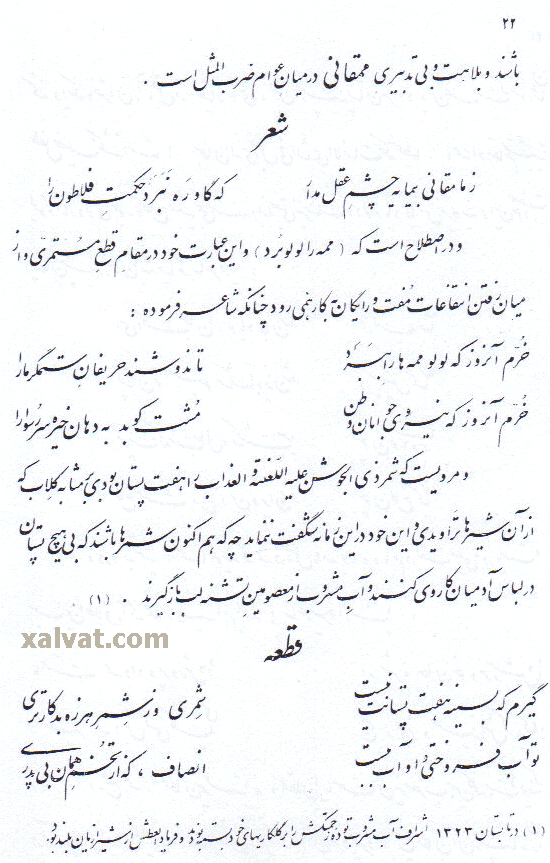 ۲۲
باشند و بلاهت و بی تدبیری ممقانی در میان عوام ضرب المثل است .
شعر
ز مامقانی بیمایه چشم عقل مدار که گاو ره نبرد حکمت فلاطون را
و در اصطلاح است که ( ممه را لولو برد ) و این عبارت خود در مقام قطع مستمری و از
میان رفتن انتفاعات مفت و رایگان بکار همی رود چنانکه شاعر فرموده :
خرم آنروز که لولو ممه ها را ببرد تا ندوشند حریفان ستمگر ما را
خرم آنروز که نیروی جوانان وطن مشت کوبد به دهان خیره سر رسوا را
و مرویست که شمر ذی الجوشن علیه اللعنة و العذاب را هفت پستان بودی بر مثابه کلاب که
از آن شیرها تراویدی و این خود در این زمانه شگفت ننماید چه که هم اکنون شمرها باشند که بی هیچ پستان
در لباس آدمیان کار وی کنند و آب مشروب از معصومین تشنه لب باز گیرند . (۱)
xalvat.com
قطعه
گیرم که بسینه هفت پستانت نیست شمری و ز شمر هرزه بد کارتری
تو آب فروختی و او آب ببست انصاف ، که از تخم همان بی پدری
(۱) در تابستان ۱۳۲۳ اشراف آب مشروب توده زحمتکش را بر گلکاریهای خود بسته بودند و فریاد العطش از شیرازیان بلند بود